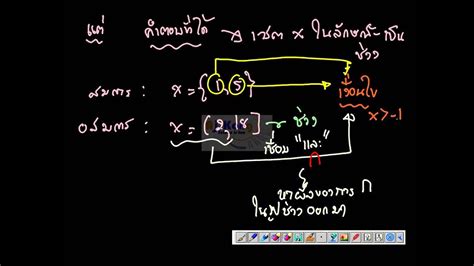 แต่ คำตอบที่ได้ → เซต x ในลักษณะเป็น
ช่วง
สมการ : x = {1, 5} → เงื่อนไข
x > -1
อสมการ : x = (2, 18] → ช่วง
เชื่อม "และ"
∩
หาผลของการ ∩
ในรูปช่วงออกมา